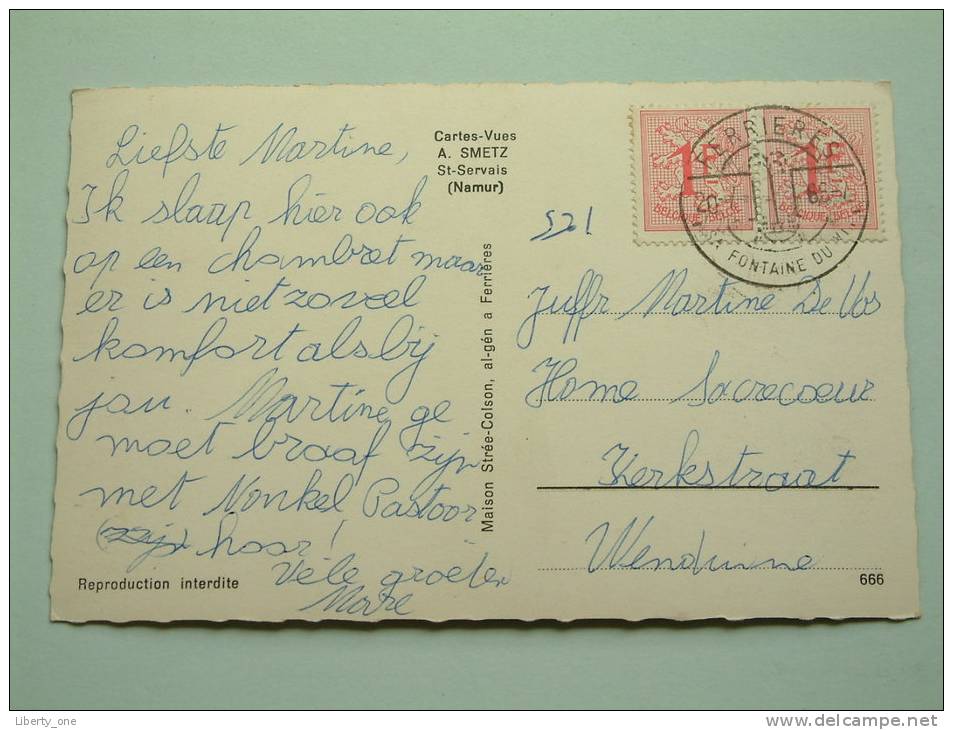 Liefste Martine,
Ik slaap hier ook
op een chambret maar
er is niet zoveel
komfort als bij
jou. Martine ge
moet braaf zijn
met Nonkel Pastoor
hoor!
Vele groeten
Cartes-Vues
A. SMETZ
St-Servais
(Namur)
Maison Strée-Colson, al-gén a Ferrières
Reproduction interdite
1F
1F
BELGIQUE-BELGIE
BELGIQUE-BELGIE
FERRIERES
FONTAINE DU
521
Juffr Martine De Vos
Home Sacrecoeur
Kerkstraat
Wenduine
666
Liberty_one
www.delcampe.net